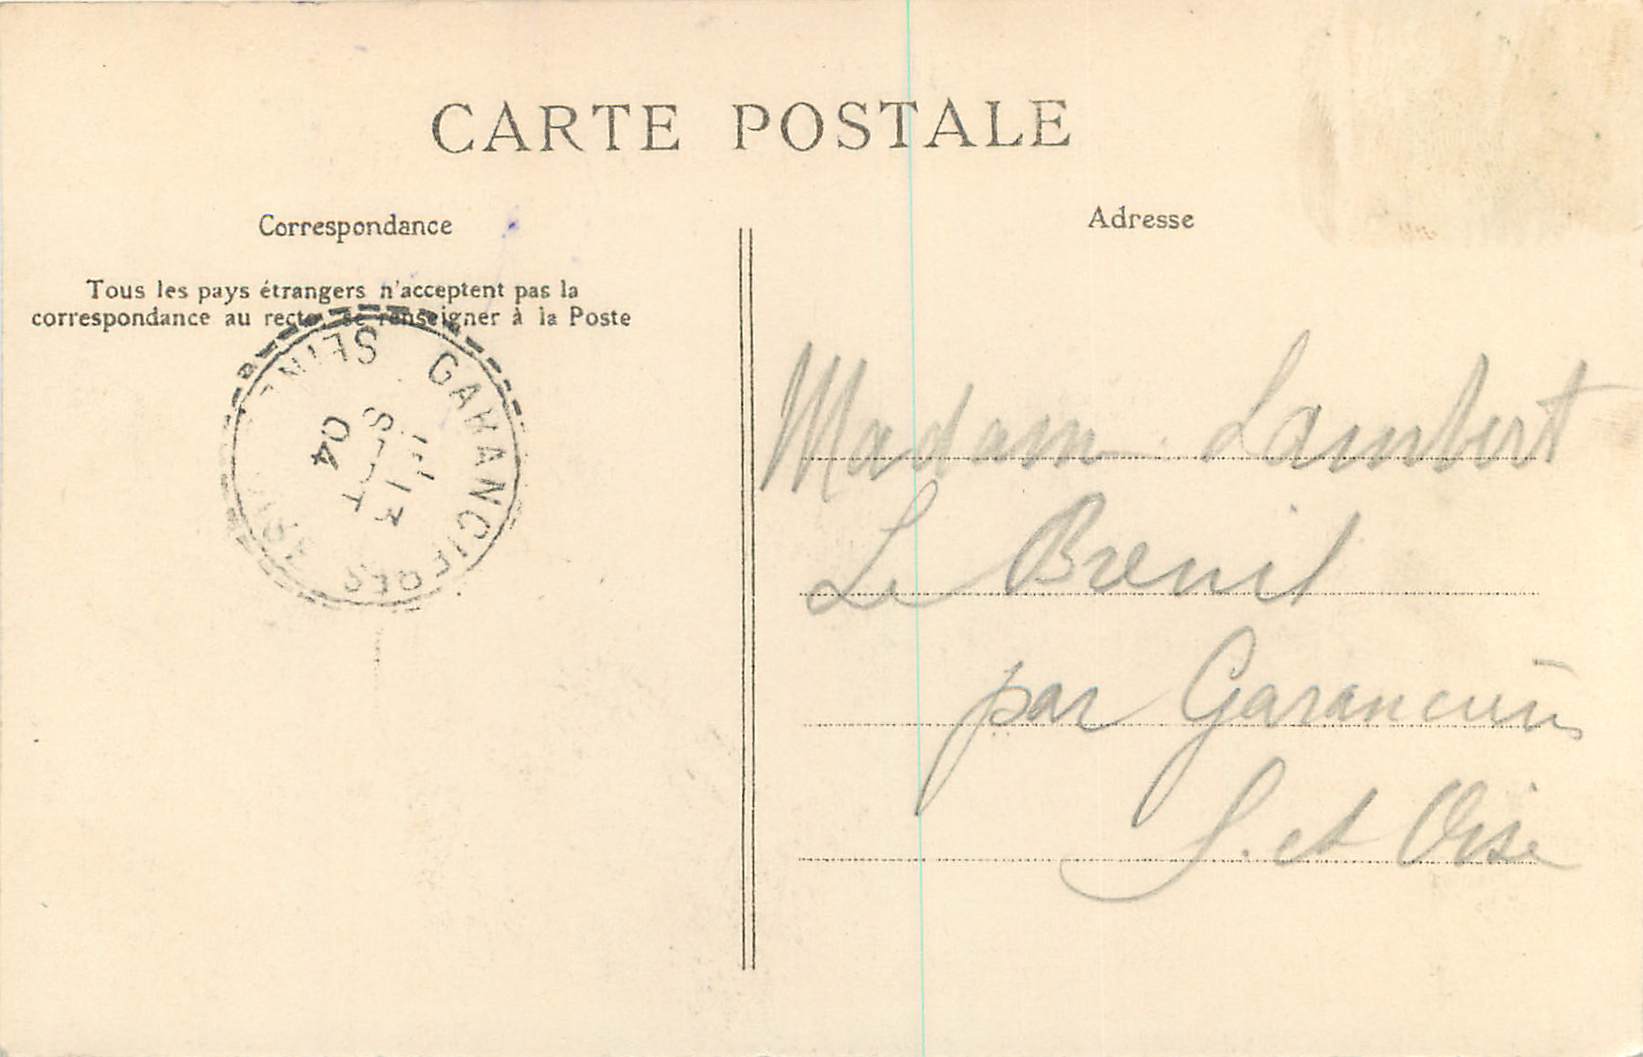 CARTE POSTALE
Correspondance
Tous les pays étrangers n'acceptent pas la
correspondance au recto, se renseigner à la Poste
Adresse
Madame Lambert
Le Breuil
par Garancières
S. et Oise
GARANCIERES
SEINE
13
SEPT
04